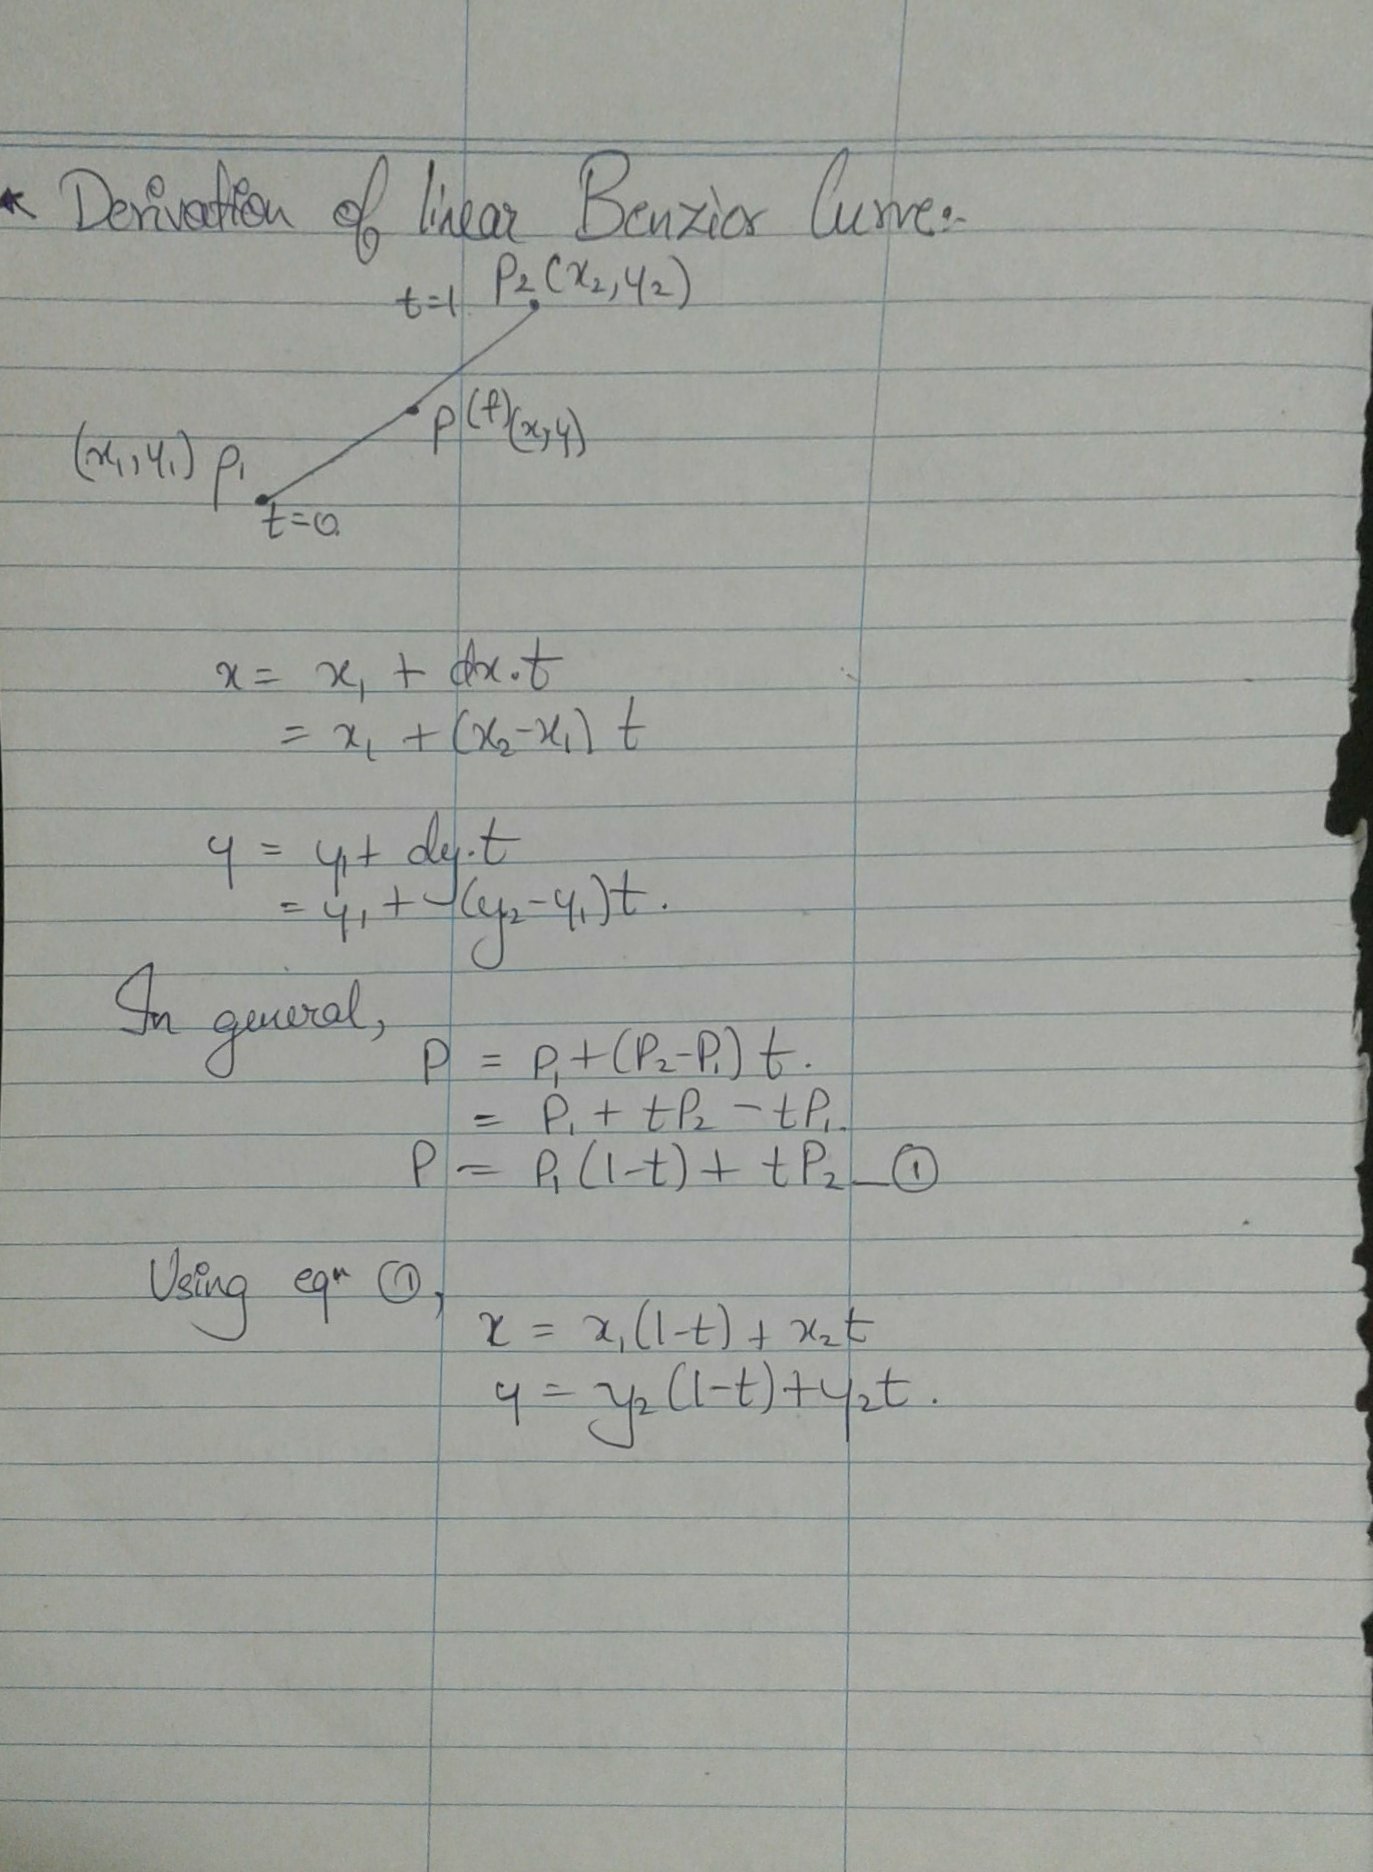 * Derivation of linear Benzior Curve:-
t=1 P₂(x₂,y₂)
P(t)(x,y)
(x₁,y₁) P₁
t=0
x = x₁ + dx.t
= x₁ + (x₂-x₁) t
y = y₁ + dy.t
= y₁ + (y₂-y₁)t.
In general,
P = P₁+(P₂-P₁) t.
= P₁ + tP₂ - tP₁.
P = P₁(1-t) + tP₂ — ①
Using eqⁿ ①,
x = x₁(1-t) + x₂t
y = y₂(1-t)+y₂t.